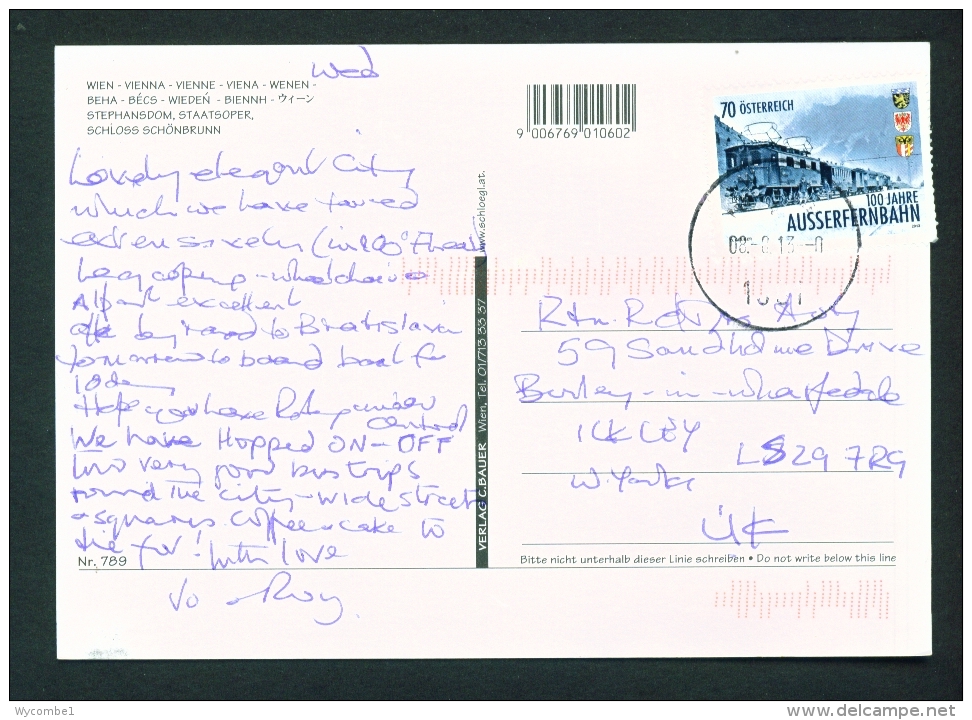 Wed
WIEN - VIENNA - VIENNE - VIENA - WENEN -
BEHA - BÉCS - WIEDEŃ - BIENNH - ウィーン
STEPHANSDOM, STAATSOPER,
SCHLOSS SCHÖNBRUNN
9 006769 010602
70 ÖSTERREICH
100 JAHRE
AUSSERFERNBAHN
08.-8.13.-0
Lovely elegant City
which we have toured
extensively (in 100°F heat
Leg coping - wheelchair
Airport excellent
off by road to Bratislava
tomorrow to board boat for
10 days
Hope you have Rotary under
control
We have Hopped ON - OFF
two very good bus trips
round the city - wide streets
& squares. Coffee & cake to
die for! With love
Nr. 789
Vo & Roy.
www.schloegl.at.
VERLAG C.BAUER Wien, Tel. 01/713 33 37
Rtn.
59 Sandholme Drive
Burley-in-Wharfedale
ILKLEY
LS29 7RG
W. Yorks
ÜK
Bitte nicht unterhalb dieser Linie schreiben • Do not write below this line
Wycombe1
www.delcampe.net